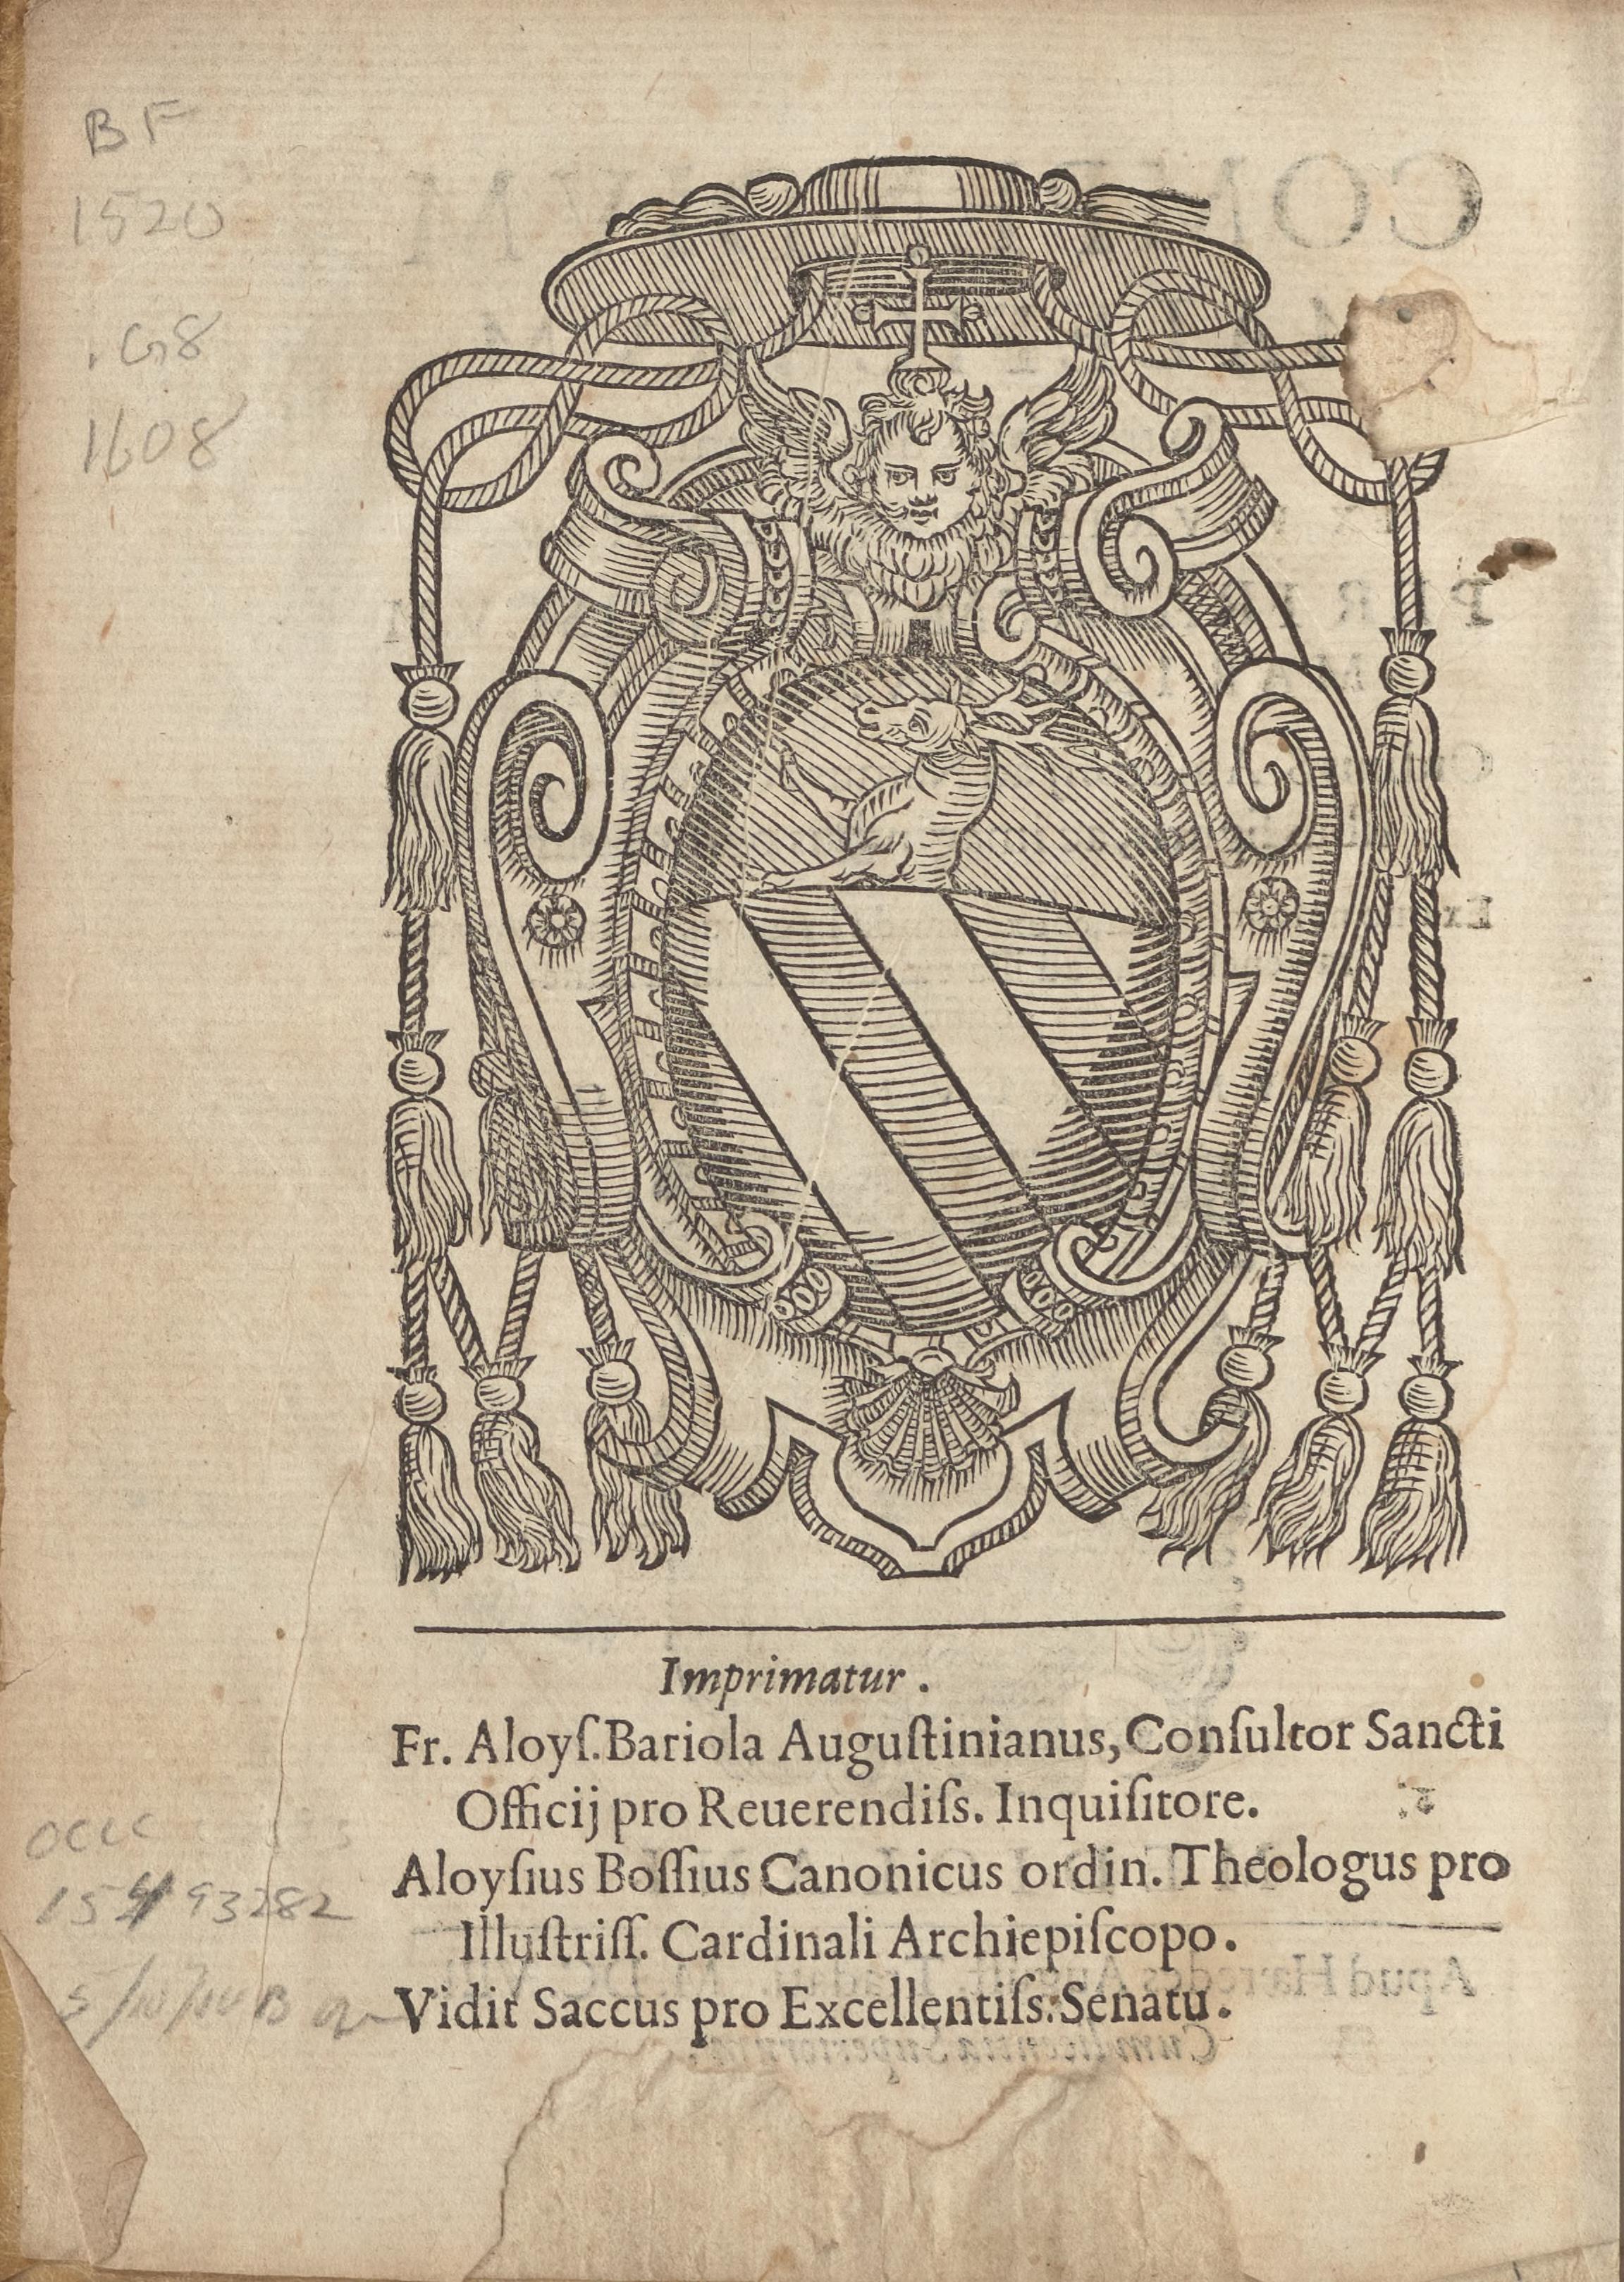 BF
1520
.G8
1608
Imprimatur.
Fr. Aloyſ. Bariola Auguſtinianus, Conſultor Sancti
Officij pro Reuerendiſs. Inquiſitore.
Aloyſius Boſſius Canonicus ordin. Theologus pro
Illuſtriſſ. Cardinali Archiepiſcopo.
Vidit Saccus pro Excellentiſs. Senatu.
OCLC
15493282
Apud Hæredes
Cum licentia Superiorum.